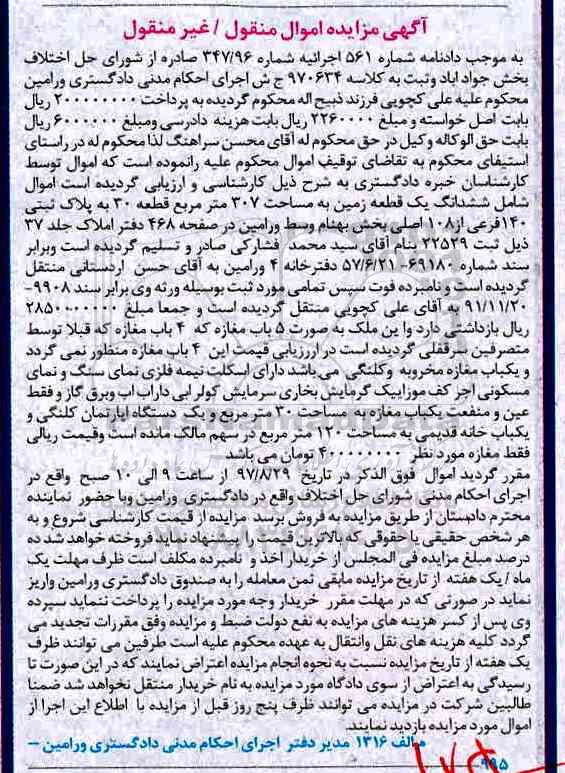 آگهی مزایده اموال منقول / غیر منقول
به موجب دادنامه شماره ۵۶۱ اجرائیه شماره ۳۴۷/۹۶ صادره از شورای حل اختلاف
بخش جواد اباد وثبت به کلاسه ۹۷۰۶۳۴ ج ش اجرای احکام مدنی دادگستری ورامین
محکوم علیه علی کچویی فرزند ذبیح اله محکوم گردیده به پرداخت ۲۰۰۰۰۰۰۰۰ ریال
بابت اصل خواسته و مبلغ ۲۲۶۰۰۰۰ ریال بابت هزینه دادرسی ومبلغ ۶۰۰۰۰۰۰ ریال
بابت حق الوکاله وکیل در حق محکوم له آقای محسن سراهنگ لذا محکوم له در راستای
استیفای محکوم به تقاضای توقیف اموال محکوم علیه رانموده است که اموال توسط
کارشناسان خبره دادگستری به شرح ذیل کارشناسی و ارزیابی گردیده است اموال
شامل ششدانگ یک قطعه زمین به مساحت ۳۰۷ متر مربع قطعه ۳۰ به پلاک ثبتی
۱۴۰فرعی از۱۰۸ اصلی بخش بهنام وسط ورامین در صفحه ۴۶۸ دفتر املاک جلد ۳۷
ذیل ثبت ۲۲۵۲۹ بنام آقای سید محمد فشارکی صادر و تسلیم گردیده است وبرابر
سند شماره ۶۹۱۸۰- ۵۷/۶/۲۱ دفترخانه ۴ ورامین به آقای حسن اردستانی منتقل
گردیده است و نامبرده فوت سپس تمامی مورد ثبت بوسیله ورثه وی برابر سند ۹۹۰۸-
۹۱/۱۱/۲۰ به آقای علی کچویی منتقل گردیده است و جمعا مبلغ ۲۸۵۰۰۰۰۰۰۰
ریال بازداشتی دارد واین ملک به صورت ۵ باب مغازه که ۴ باب مغازه که قبلا توسط
متصرفین سرقفلی گردیده است در ارزیابی قیمت این ۴ باب مغازه منظور نمی گردد
و یکباب مغازه مخروبه وکلنگی می باشد دارای اسکلت نیمه فلزی نمای سنگ و نمای
مسکونی اجر کف موزاییک گرمایش بخاری سرمایش کولر ابی داراب اب وبرق گاز و فقط
عین و منفعت یکباب مغازه به مساحت ۳۰ متر مربع و یک دستگاه اپارتمان کلنگی و
یکباب خانه قدیمی به مساحت ۱۲۰ متر مربع در سهم مالک مانده است وقیمت ریالی
فقط مغازه مورد نظر ۴۰۰۰۰۰۰۰۰ تومان می باشد
مقرر گردید اموال فوق الذکر در تاریخ ۹۷/۸/۲۹ از ساعت ۹ الی ۱۰ صبح واقع در
اجرای احکام مدنی شورای حل اختلاف واقع در دادگستری ورامین وبا حضور نماینده
محترم دادستان از طریق مزایده به فروش برسد مزایده از قیمت کارشناسی شروع و به
هر شخص حقیقی یا حقوقی که بالاترین قیمت را پیشنهاد نماید فروخته خواهد شد ده
درصد مبلغ مزایده فی المجلس از خریدار اخذ و نامبرده مکلف است ظرف مهلت یک
ماه / یک هفته از تاریخ مزایده مابقی ثمن معامله را به صندوق دادگستری ورامین واریز
نماید در صورتی که در مهلت مقرر خریدار وجه مورد مزایده را پرداخت ننماید سپرده
وی پس از کسر هزینه های مزایده به نفع دولت ضبط و مزایده وفق مقررات تجدید می
گردد کلیه هزینه های نقل وانتقال به عهده محکوم علیه است طرفین می توانند ظرف
یک هفته از تاریخ مزایده نسبت به نحوه انجام مزایده اعتراض نمایند که در این صورت تا
رسیدگی به اعتراض از سوی دادگاه مورد مزایده به نام خریدار منتقل نخواهد شد ضمنا
طالبین شرکت در مزایده می توانند ظرف پنج روز قبل از مزایده با اطلاع این اجرا از
اموال مورد مزایده بازدید نمایند.
م الف ۱۳۱۶ مدیر دفتر اجرای احکام مدنی دادگستری ورامین –